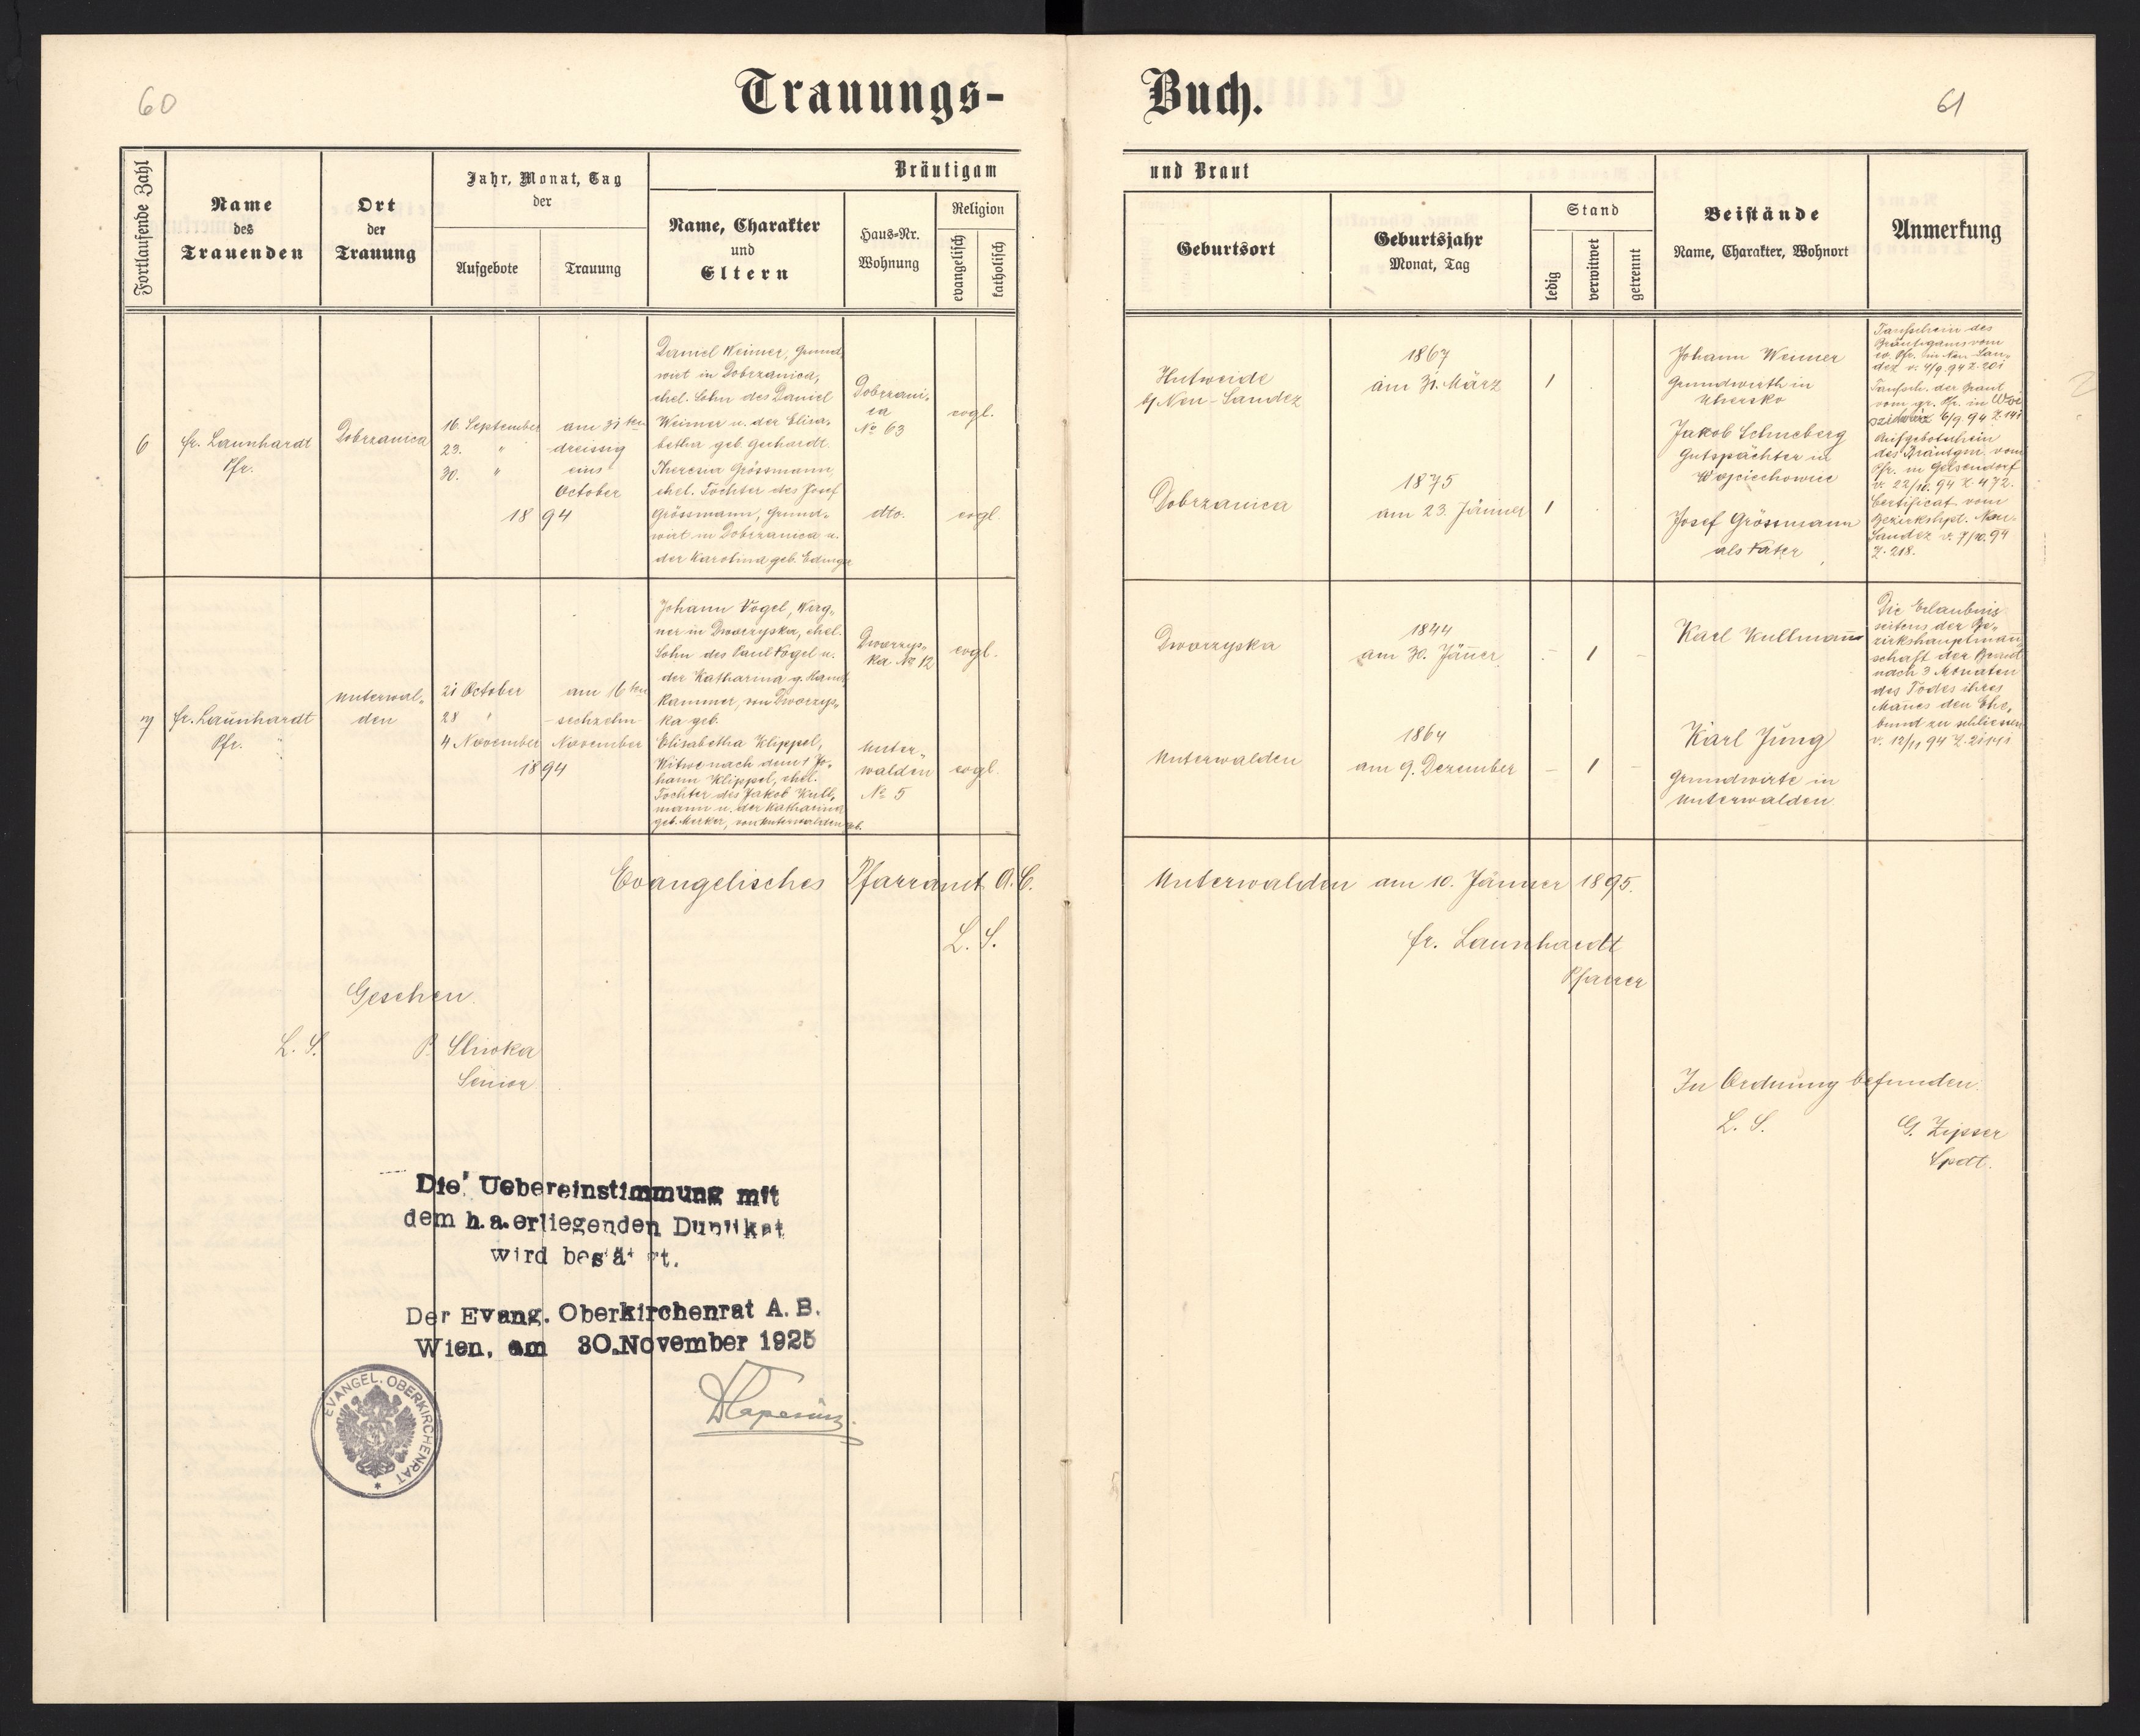 60
Trauungs-
Buch.
61
Fortlaufende Zahl
Name
des
Trauenden
Ort
der
Trauung
Jahr, Monat, Tag
der
Aufgebote
Trauung
Bräutigam
Name, Charakter
und
Eltern
Haus-Nr.
Wohnung
Religion
evangelisch
katholisch
und Braut
Geburtsort
Geburtsjahr
Monat, Tag
Stand
ledig
verwitwet
getrennt
Beistände
Name, Charakter, Wohnort
Anmerkung
6
Fr. Launhardt
Pfr.
Dobrzanica
16. September
23. "
30. "
am 31ten
dreissig
eins
October
1894
Daniel Weimer, Grund-
wirt in Dobrzanica,
ehel. Sohn des Daniel
Weimer u. der Elisa-
betha geb. Gerhardt.
Theresia Grössmann,
ehel. Tochter des Josef
Grössmann, Grund-
wirt in Dobrzanica u.
der Karolina geb. Edinger
Dobrzani-
ca
No 63
dto.
evgl.
evgl.
Hutweide
b/ Neu-Sandez
Dobrzanica
1867
am 31. März
1875
am 23. Jänner
1
1
Johann Weimer
Grundwirth in
Uhersko
Jakob Schneberg
Gutspächter in
Wojciechowice
Josef Grössmann
als Vater
Taufschein des
Bräutigams vom
ev. Pfr. in Neu-San-
dez v. 4/9.94 Z. 201
Taufsch. der Braut
vom gr. Pfr. in
6/9.94 Z. 141
Aufgebotschein
des Bräutgm. vom
Pfr. in Gelsendorf
v. 22/10.94 Z. 472.
Certificat vom
Bezirkshpt. Neu-
Sandez v. 7/10.94
Z. 218.
7
Fr. Launhardt
Pfr.
Unterwal-
den
21 October
28 "
4 November
am 16ten
sechzehn
November
1894
Johann Vogel, Wag-
ner in Dworzyska, ehel.
Sohn des Paul Vogel u.
der Katharina g.
kammer, von Dworzys-
ka geb.
Elisabetha Klippel,
Witwe nach dem † Jo-
hann Klippel, ehel.
Tochter des Jakob Kull-
mann u. der Katharina
geb. Merker, von Unterwalden geb.
Dworzys-
ka No 12
Unter-
walden
No 5
evgl.
evgl.
Dworzyska
Unterwalden
1844
am 30. Jänner
1864
am 9. Dezember
- 1 -
- 1 -
Karl Kullmann
Karl Jung
Grundwirte in
Unterwalden.
Die Erlaubnis
seitens der Be-
zirkshauptman-
schaft der Braut
nach 3 Monaten
des Todes ihres
Manes den Ehe-
bund zu schliessen
v. 12/11 94 Z. 21141
Evangelisches Pfarramt A. C.
Unterwalden am 10. Jänner 1895.
L. S.
Fr. Launhardt
Pfarrer
Gesehen.
L. S. P. Sliwka
Senior
In Ordnung befunden.
L. S. G. Zipser
Spdt.
Die Uebereinstimmung mit
dem h.a. erliegenden Duplikat
wird bestätigt.
Der Evang. Oberkirchenrat A. B.
Wien, am 30. November 1925
EVANGEL. OBERKIRCHENRAT